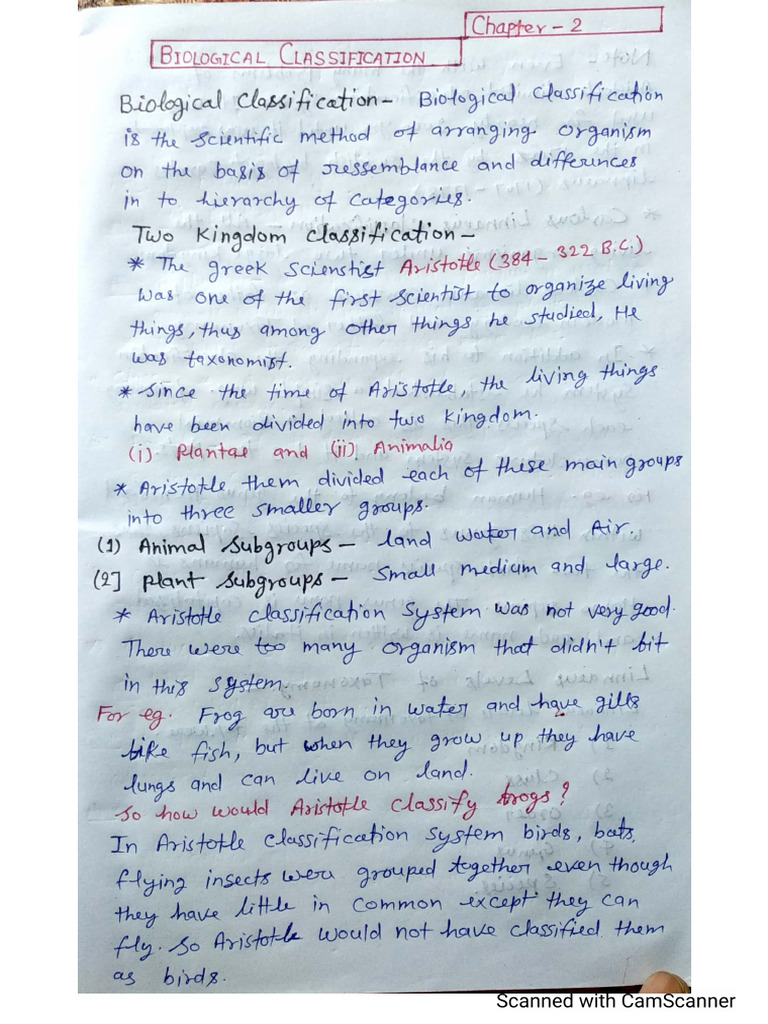 Chapter - 2
BIOLOGICAL CLASSIFICATION
Biological Classification - Biological Classification
is the scientific method of arranging organism
on the basis of ressemblance and differences
in to hierarchy of categories.
Two Kingdom Classification -
* The greek Scienstist Aristotle (384 - 322 B.C.)
was one of the first scientist to organize living
things, thus among other things he studied, He
was taxonomist.
* Since the time of Aristotle, the living things
have been divided into two Kingdom.
(i) Plantae and (ii) Animalia
* Aristotle them divided each of these main groups
into three smaller groups.
(1) Animal Subgroups - land water and Air.
(2] Plant Subgroups - Small medium and large.
* Aristotle classification System was not very good.
There were too many organism that didn't bit
in this system.
For eg. Frog are born in water and have gills
like fish, but when they grow up they have
lungs and can live on land.
So how would Aristotle classify frogs?
In Aristotle classification system birds, bats,
flying insects were grouped together even though
they have little in common except they can
fly. So Aristotle would not have classified them
as birds.
Scanned with CamScanner